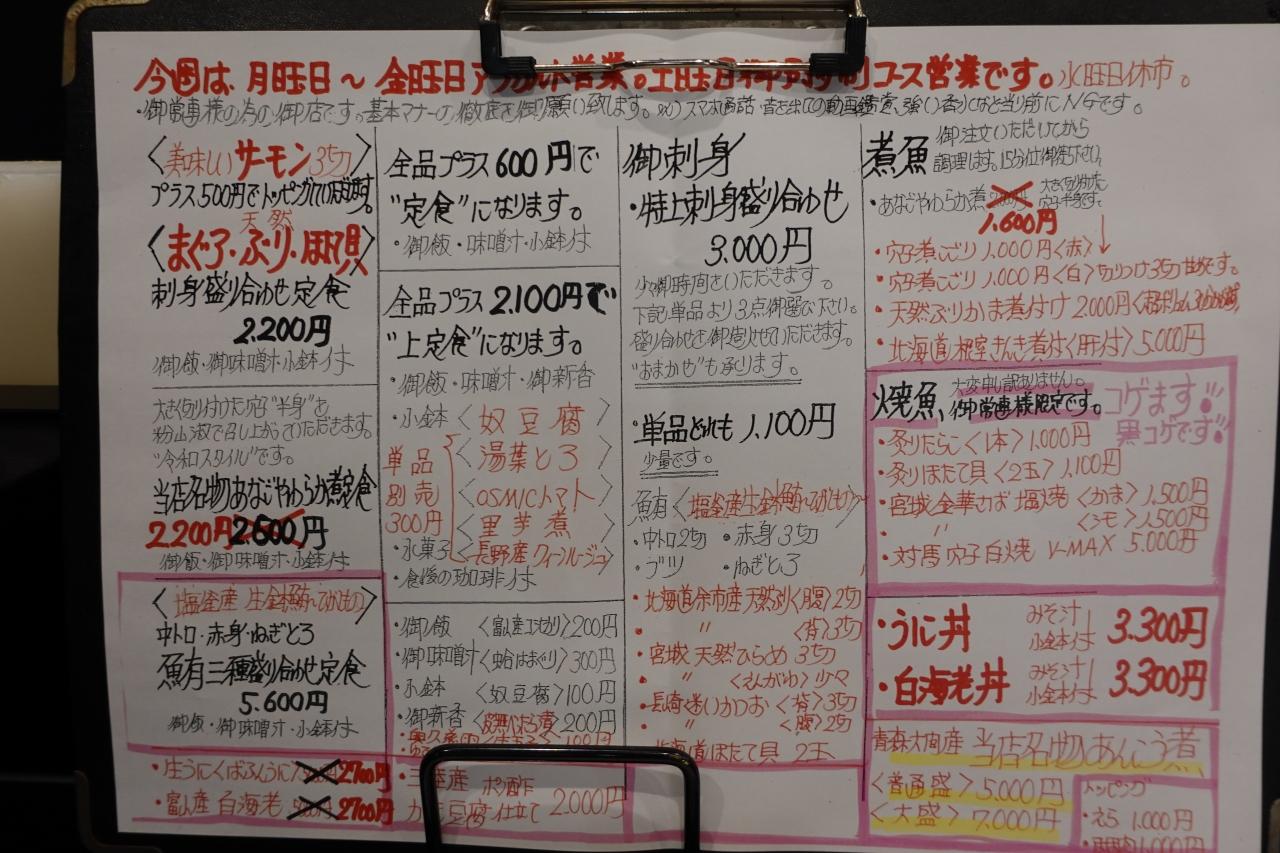 今週は、月曜日～金曜日アラカルト営業。土曜日御予約制コース営業です。水曜日休市。
・御常連様の為の御店です。基本マナーの徹底を御願い致します。スマホ通話 音を出しての動画鑑賞、強い香りなど当り前にNGです。
〈美味しいサーモン3切〉
プラス500円でトッピングていただけます。
天然
〈まぐろ・ぶり・ほたて貝〉
刺身盛り合わせ定食
2.200円
御飯・御味噌汁・小鉢付
大きく切り付けた穴子"半身"を
粉山淑で召し上がっていただきます。
"令和スタイル"です。
当店名物あなごやわらか煮定食
2.200円 2.600円
御飯・御味噌汁・小鉢付
〈塩釜産 生本鮪〉
中トロ・赤身・ねぎとろ
鮪三種盛り合わせ定食
5.600円
御飯・御味噌汁・小鉢付
・生うに〈ばふんうに〉 2700円
・富山産 白海老 2700円
全品プラス600円で
"定食"になります。
・御飯・味噌汁・小鉢付
全品プラス2.100円で
"上定食"になります。
・御飯・味噌汁・御新香
・小鉢〈奴豆腐〉
単品別売300円
〈湯葉とろ〉
〈OSMICトマト〉
〈里芋煮〉
・水菓子〈長野産クイーンルージュ〉
・食後の珈琲付
・御飯〈富山産コシヒカリ〉200円
・御味噌汁〈蛤はまぐり〉300円
・小鉢〈奴豆腐〉100円
・御新香 200円
三陸産 ポン酢
豆腐仕立て 2.000円
御刺身
・特上刺身盛り合わせ
3.000円
少々御時間をいただきます。
下記単品より3点御選び下さい。
盛り合わせを御造りさせていただきます。
"おまかせ"も承ります。
・単品どれも1,100円
少量です。
鮪〈塩釜産生本鮪〉
・中トロ2切 ・赤身3切
・ブツ ・ねぎとろ
・北海道余市産 天然ぶり〈腹〉2切
・〃〈背〉3切
・宮城 天然ひらめ 3切
・〃〈えんがわ〉少々
・長崎 迷いかつお〈背〉3切
・〃〈腹〉2切
北海道ほたて貝 2玉
煮魚 御注文いただいてから
調理します。15分位御待ち下さい。
・あなごやわらか煮 1.600円
・穴子煮こごり 1,000円〈赤〉
・穴子煮こごり 1,000円〈白〉
・天然ぶりかま煮付け 2.000円
・北海道 根室きんき煮付〈肝付〉5.000円
焼魚 大変申し訳ありません。
御常連様限定です。
コゲます!!
黒コゲです!
・炙りたらこ〈1本〉1,000円
・炙りほたて貝〈2玉〉1,100円
・宮城 金華さば 塩焼〈かま〉1,500円
〃〈シモ〉1,500円
・対馬 穴子 白焼 V-MAX 5.000円
・うに丼 みそ汁 小鉢付 3.300円
・白海老丼 みそ汁 小鉢付 3.300円
青森大間産 当店名物あんこう煮
〈普通盛〉5.000円
〈大盛〉7.000円
トッピング
・えら 1.000円